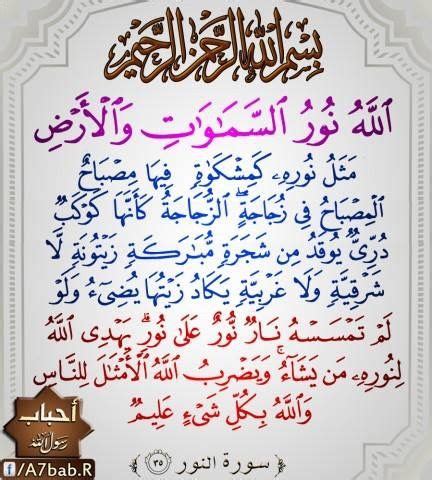 بِسْمِ اللَّهِ الرَّحْمَنِ الرَّحِيمِ
ٱللَّهُ نُورُ ٱلسَّمَـٰوَٰتِ وَٱلْأَرْضِ
مَثَلُ نُورِهِۦ كَمِشْكَوٰةٍ فِيهَا مِصْبَاحٌ
ٱلْمِصْبَاحُ فِى زُجَاجَةٍ ۖ ٱلزُّجَاجَةُ كَأَنَّهَا كَوْكَبٌ
دُرِّىٌّ يُوقَدُ مِن شَجَرَةٍ مُّبَـٰرَكَةٍ زَيْتُونَةٍ لَّا
شَرْقِيَّةٍ وَلَا غَرْبِيَّةٍ يَكَادُ زَيْتُهَا يُضِىٓءُ وَلَوْ
لَمْ تَمْسَسْهُ نَارٌ ۚ نُّورٌ عَلَىٰ نُورٍ ۗ يَهْدِى ٱللَّهُ
لِنُورِهِۦ مَن يَشَآءُ ۚ وَيَضْرِبُ ٱللَّهُ ٱلْأَمْثَـٰلَ لِلنَّاسِ
وَٱللَّهُ بِكُلِّ شَىْءٍ عَلِيمٌ
﴿ سورة النور ٣٥ ﴾
أحباب
رسول الله
f /A7bab.R